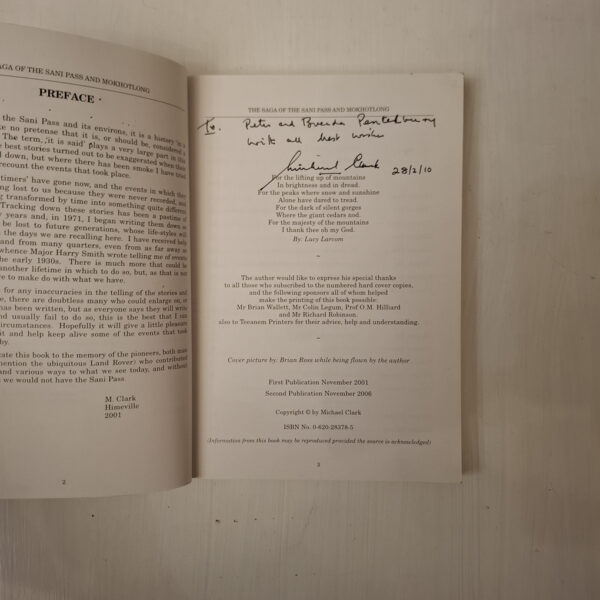 AGA OF THE SANI PASS AND MOKHOTLONG
PREFACE
the Sani Pass and its environs, it is a history 'in a
no pretense that it is, or should be, considered a
The term, 'it is said' plays a very large part in this
best stories turned out to be exaggerated when
down, but where there has been smoke I have tried
recount the events that took place.
timers' have gone now, and the events in which they
lost to us because they were never recorded, and
transformed by time into something quite different
Tracking down these stories has been a pastime of
years and, in 1971, I began writing them down so
be lost to future generations, whose life-styles will
the days we are recalling here. I have received help
and from many quarters, even from as far away as
whence Major Harry Smith wrote telling me of events
the early 1930s. There is much more that could be
another lifetime in which to do so, but, as that is not
to make do with what we have.
for any inaccuracies in the telling of the stories and
there are doubtless many who could enlarge on, or
has been written, but as everyone says they will write
and usually fail to do so, this is the best that I can
circumstances. Hopefully it will give a little pleasure
it and help keep alive some of the events that took
by.
this book to the memory of the pioneers, both man
mention the ubiquitous Land Rover) who contributed
and various ways to what we see today, and without
we would not have the Sani Pass.
M. Clark
Himeville
2001
2
THE SAGA OF THE SANI PASS AND MOKHOTLONG
To. Peter and Brenda Pentelbury
with all best wishes
Michael Clark 28/2/10
For the lifting up of mountains
In brightness and in dread.
For the peaks where snow and sunshine
Alone have dared to tread.
For the dark of silent gorges
Where the giant cedars nod.
For the majesty of the mountains
I thank thee oh my God.
By: Lucy Larcom
~
The author would like to express his special thanks
to all those who subscribed to the numbered hard cover copies,
and the following sponsors all of whom helped
make the printing of this book possible:
Mr Brian Wallett, Mr Colin Legum, Prof O.M. Hilliard
and Mr Richard Robinson.
also to Teeanem Printers for their advice, help and understanding.
~
Cover picture by: Brian Ross while being flown by the author
First Publication November 2001
Second Publication November 2006
Copyright © by Michael Clark
ISBN No. 0-620-28378-5
(Information from this book may be reproduced provided the source is acknowledged)
3